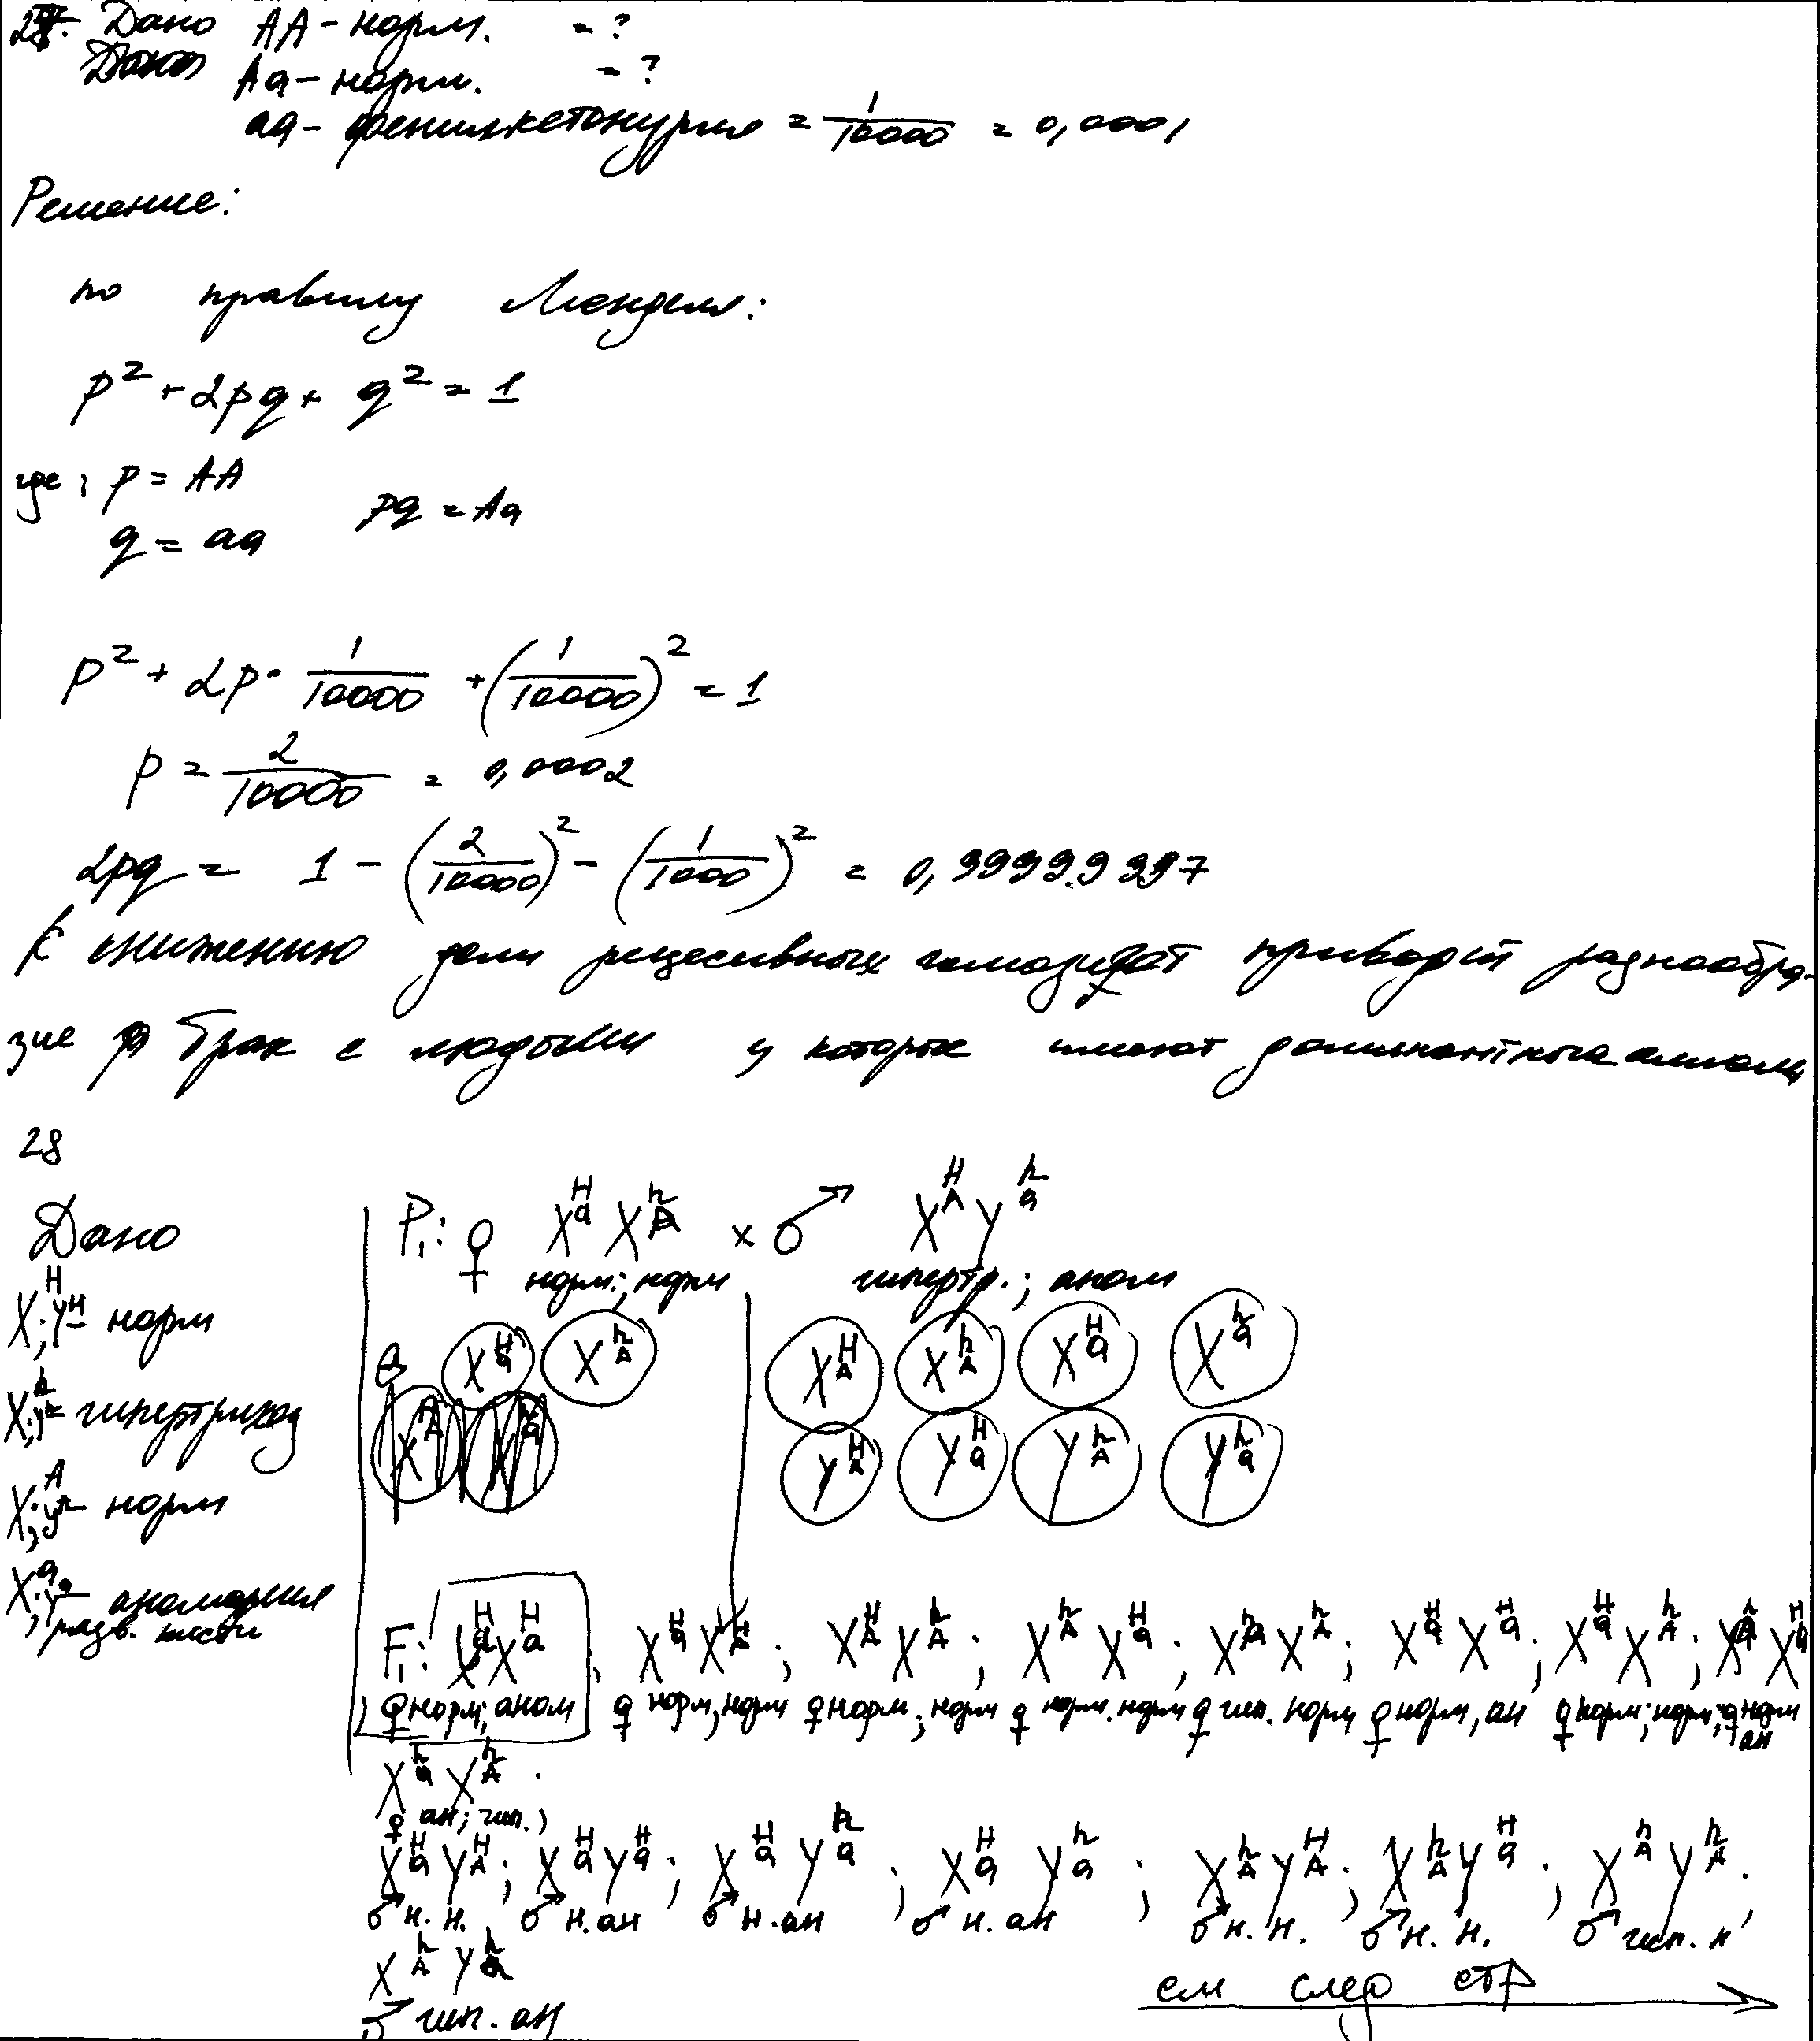 27. Дано AA - норм. = ?
Aa - норм. = ?
aa - фенилкетонурия = 1/10000 = 0,0001
Решение:
по правилу Менделя:
p² + 2pq + q² = 1
где: p = AA
pq = Aa
q = aa
p² + 2p · 1/10000 + (1/10000)² = 1
p = 2/10000 = 0,0002
2pq = 1 - (2/10000)² - (1/1000)² = 0,99999997
К снижению доли рецесивных гомозигот приводит разнообра-
зие брак с людьми у которые имеют доминантные аллели
28
Дано
норм
гипертрихоз
норм
аномалия
разв. кисти
P₁: ♀ X^H_a X^h_A × ♂ X^H_A Y^h_a
норм; норм гипертр.; аном
G X^H_a X^h_A X^H_A X^h_A X^H_a X^h_a
Y^H_A Y^H_a Y^h_A Y^h_a
F₁: X^H_a X^H_a
♀ норм; аном ♀ норм, норм ♀ норм; норм ♀ норм. норм ♀ гип. норм ♀ норм, ан ♀ норм; норм; ♀ норм
ан
X^h_a X^h_A
♀ ан; гип.;
X^H_a Y^H_A; X^H_a Y^H_a; X^H_a Y^h_a; X^H_a Y^h_a; X^h_A Y^H_A; X^h_A Y^H_a; X^h_A Y^h_A.
♂ н. н. ♂ н. ан ♂ н. ан ♂ н. ан ♂ н. н. ♂ н. н. ♂ гип. н
X^h_A Y^h_a
♂ гип. ан
см след стр